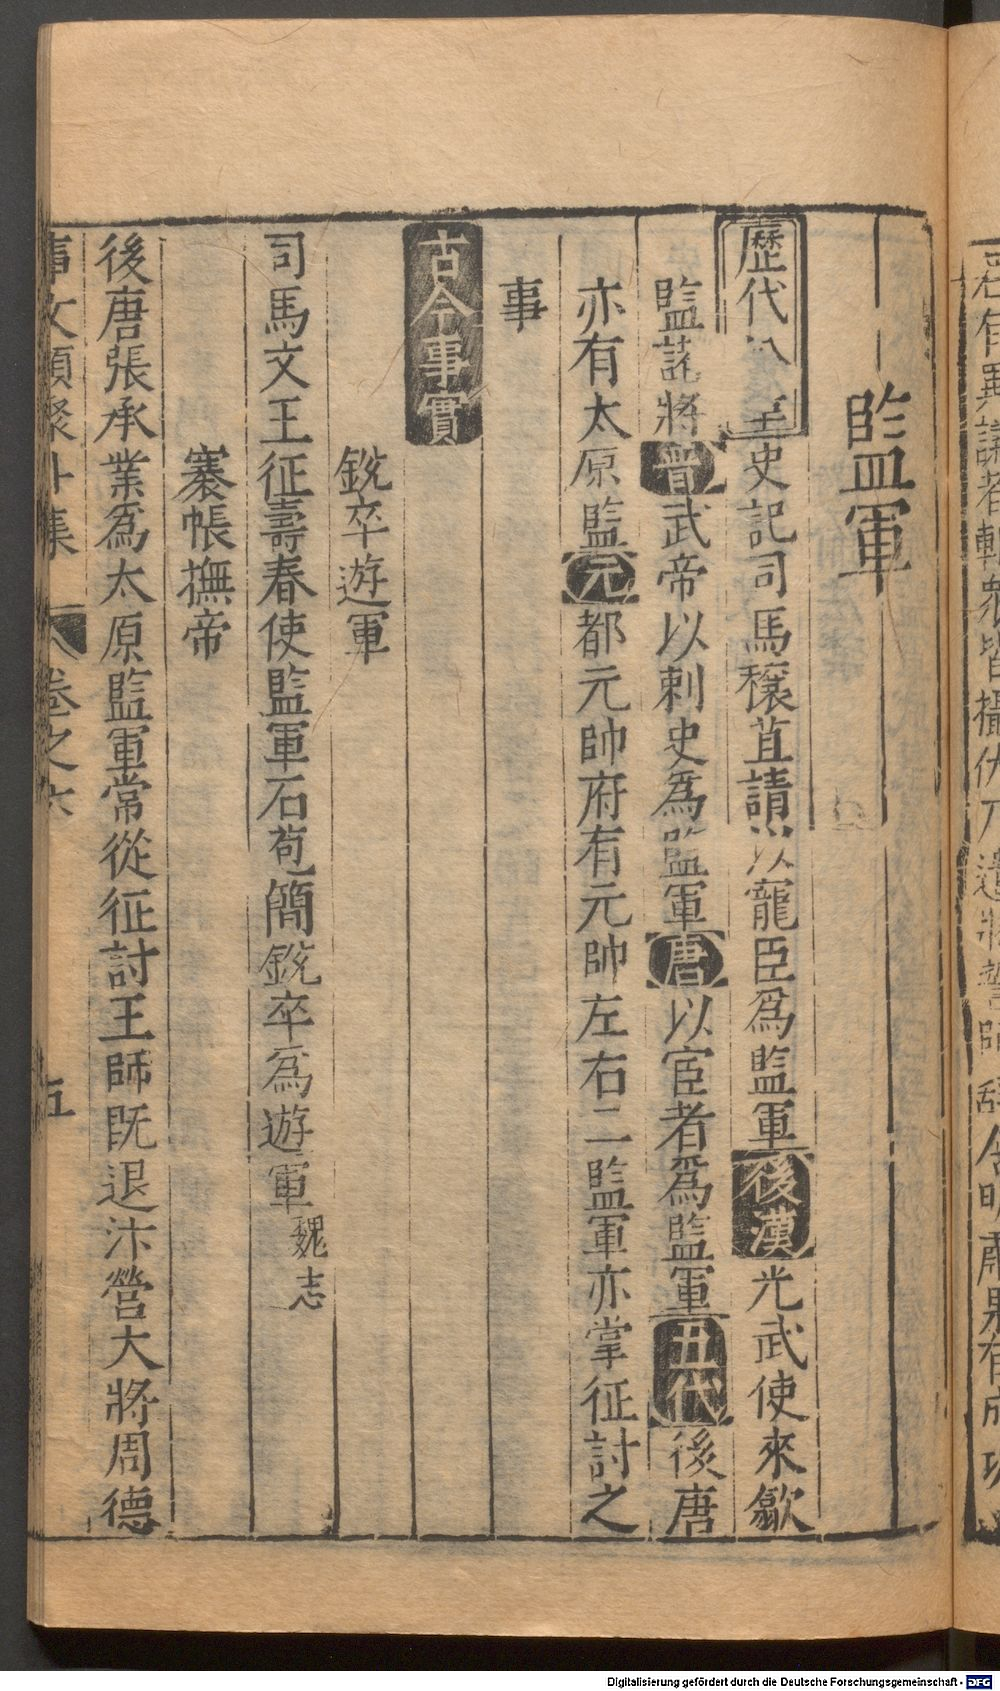 監軍
歷代 史記司馬穰苴請以寵臣爲監軍後漢光武使來歙
監諸將晉武帝以刺史爲監軍唐以宦者爲監軍五代後唐
亦有太原監元都元帥府有元帥左右二監軍亦掌征討之
事
古今事實
銳卒遊軍
司馬文王征壽春使監軍石苞簡銳卒爲遊軍魏志
褰帳撫帝
後唐張承業爲太原監軍常從征討王師既退汴營大將周德
事文類聚外集 卷之六 五
Digitalisierung gefördert durch die Deutsche Forschungsgemeinschaft - DFG